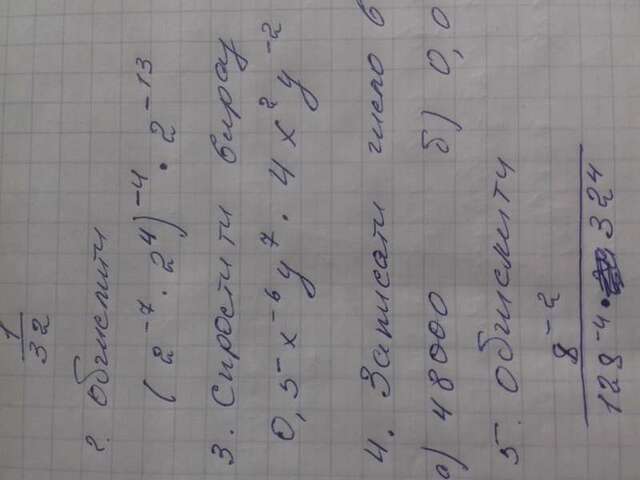 1/32
2. Обчислити
(2^-7 · 2^4)^-4 · 2^-13
3. Спростити вираз
0,5 x^-6 y^7 · 4 x^2 y^-2
4. Записати число в
а) 48000 б) 0,0
5. Обчислити
8^-2
128^-4 · 32^4